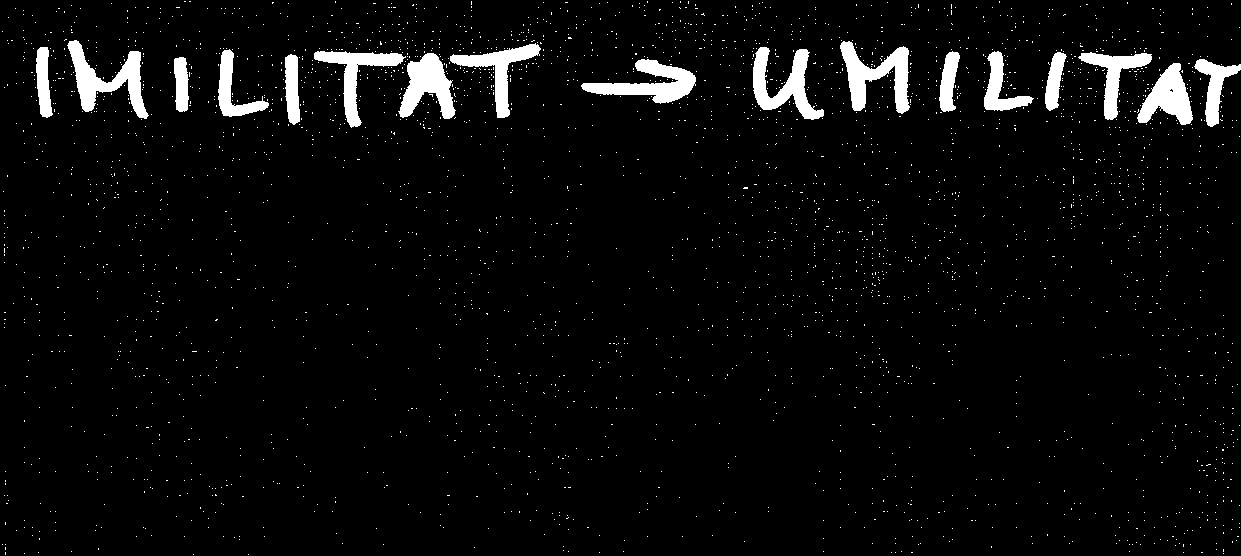 IMILITAT → UMILITAT